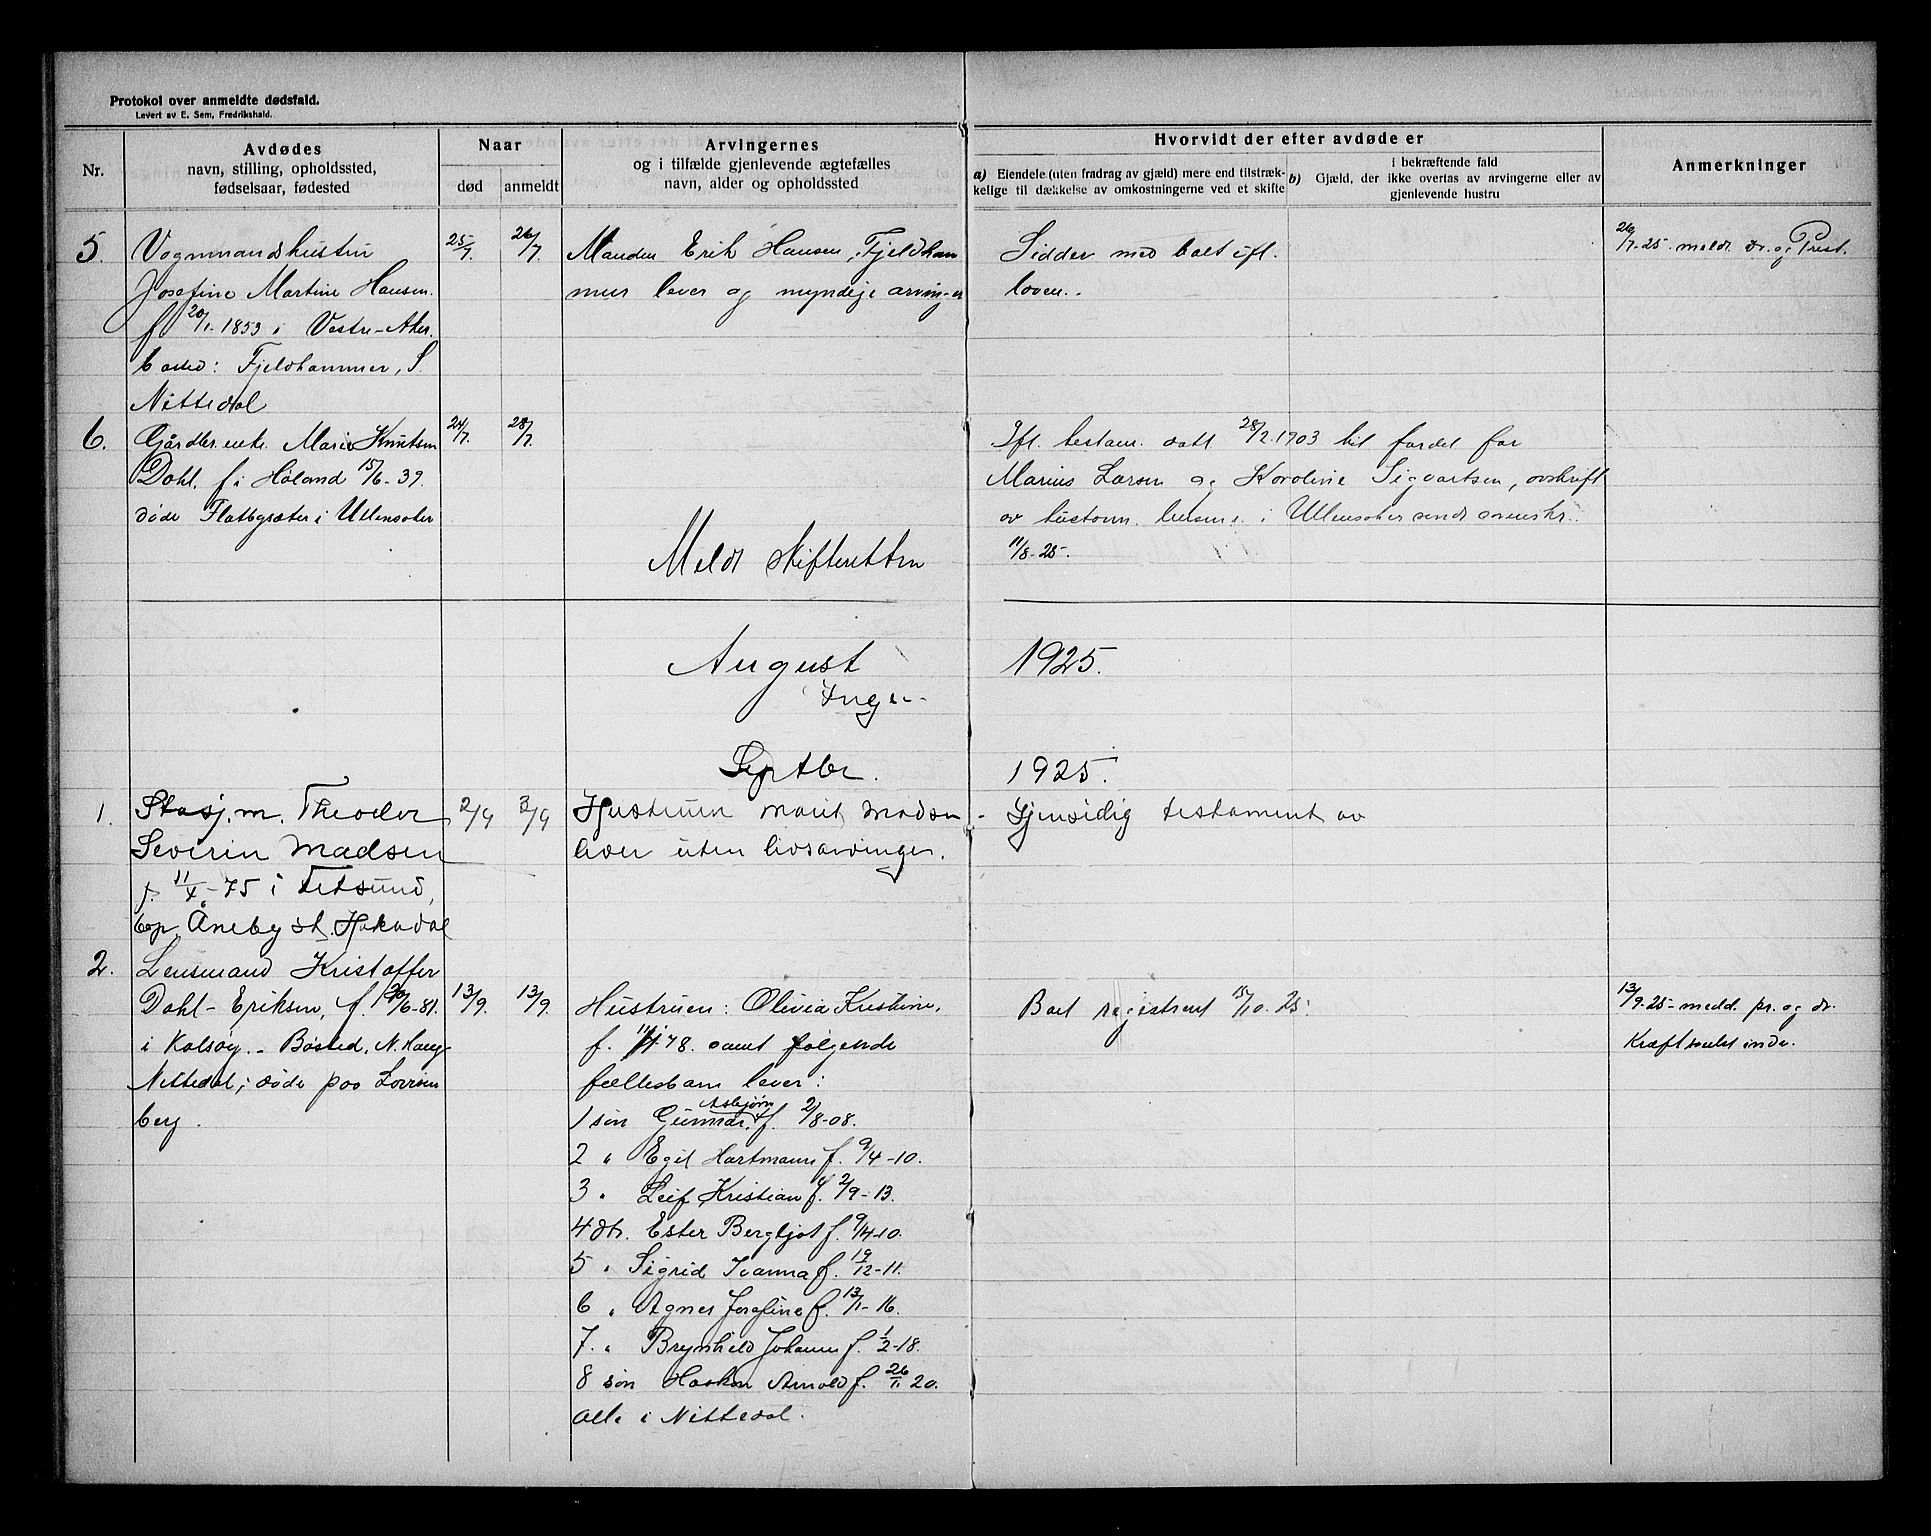 Protokol over anmeldte dødsfald.
Levert av E. Sem, Fredrikshald.
Nr.
Avdødes
navn, stilling, opholdssted,
fødselsaar, fødested
Naar
død
anmeldt
Arvingernes
og i tilfælde gjenlevende ægtefælles
navn, alder og opholdssted
Hvorvidt der efter avdøde er
a) Eiendele (uten fradrag av gjæld) mere end tilstræk-
kelige til dækkelse av omkostningerne ved et skifte
i bekræftende fald
b) Gjæld, der ikke overtas av arvingerne eller av
gjenlevende hustru
Anmerkninger
5.
Vognmandshustru
Josefine Martine Hansen.
f 20/1-1853 i Vestre-Aker.
bosted: Fjeldhammer, S.
Nittedal
25/7.
26/7.
Manden Erik Hansen, Fjeldham
mer lever og myndige arvinger
Sidder med boet ifl.
loven.
26/7-25 meldt dr. og Prest.
6.
Gårdbr.enke. Marie Knutsen
Dahl. f. i Høland 15/6-39.
døde Flatbygræter i Ullensaker
24/7.
28/7.
Meldt skifteretten
Ifl. testam. datt. 28/2.1903 til fordel for
Marius Larsen og Karoline Sigvartsen, avskrift
av testam. i Ullensaker sendt
11/8-25.
August
1925.
Ingen
Septbr.
1925.
1.
Stasj.m. Theodor
Severin Madsen
f. 11/4-75 i Fetsund,
bop. Åneby st. Hakadal
2/9
3/9
Hustruen Marit Madsen
lever uten livsarvinger.
- Gjensidig testament av
2.
Lensmand Kristoffer
Dahl-Eriksen, f. 20/6-81.
i Kolsøy. - Bosted, N. Haug
Nittedal; døde paa Lovisen
berg.
13/9.
13/9.
Hustruen: Olivia Kristine,
f. 11/1-78. samt følgende
fællesbarn lever:
1 søn Gunnar Asbjørn f. 2/8-08.
2 " Egil Hartmann f. 9/4-10.
3 " Leif Kristian f. 2/9-13.
4 dtr. Ester Bergljot f. 9/4-10.
5 " Sigrid Ivanna f. 19/12-11.
6 " Agnes Josefine f. 13/1-16.
7. " Brynhild Johanne f. 1/2-18.
8 søn Haakon Arnold f. 26/11 20.
alle i Nittedal.
Boet registrert 15/10.25.
13/9.25- meldt. pr. og dr.